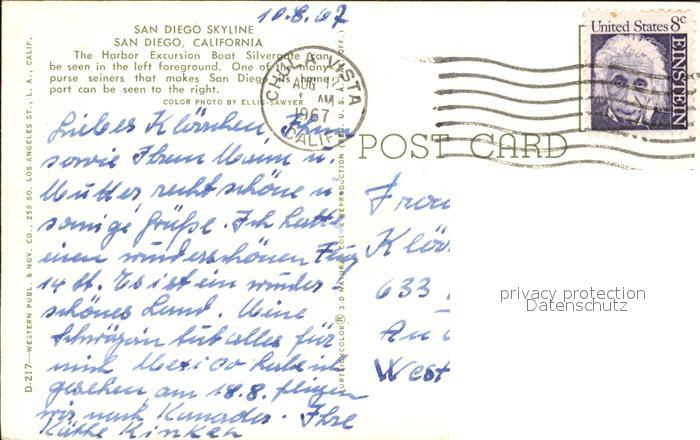 10.8.67
SAN DIEGO SKYLINE
SAN DIEGO, CALIFORNIA
The Harbor Excursion Boat Silvergate can
be seen in the left foreground. One of the many
purse seiners that makes San Diego its home
port can be seen to the right.
COLOR PHOTO BY ELLIS-SAWYER
D-217—WESTERN PUBL. & NOV. CO., 259 SO. LOS ANGELES ST., L. A., CALIF.
CHULA VISTA
AUG 12
AM
1967
CALIF.
United States 8c
EINSTEIN
POST CARD
Liebes Klärchen, Ihnen
sowie Ihrem Mann u.
Mutter recht schöne u
sonnige Grüße. Ich hatte
einen wunderschönen Flug
14 St. Es ist ein wunder-
schönes Land. Meine
Schwägerin tut alles für
mich Mexico habe ich
gesehen am 18.8. fliegen
wir nach Kanada. Ihre
Käthe Kinken
Frau
Klär
633
An
West
privacy protection
Datenschutz